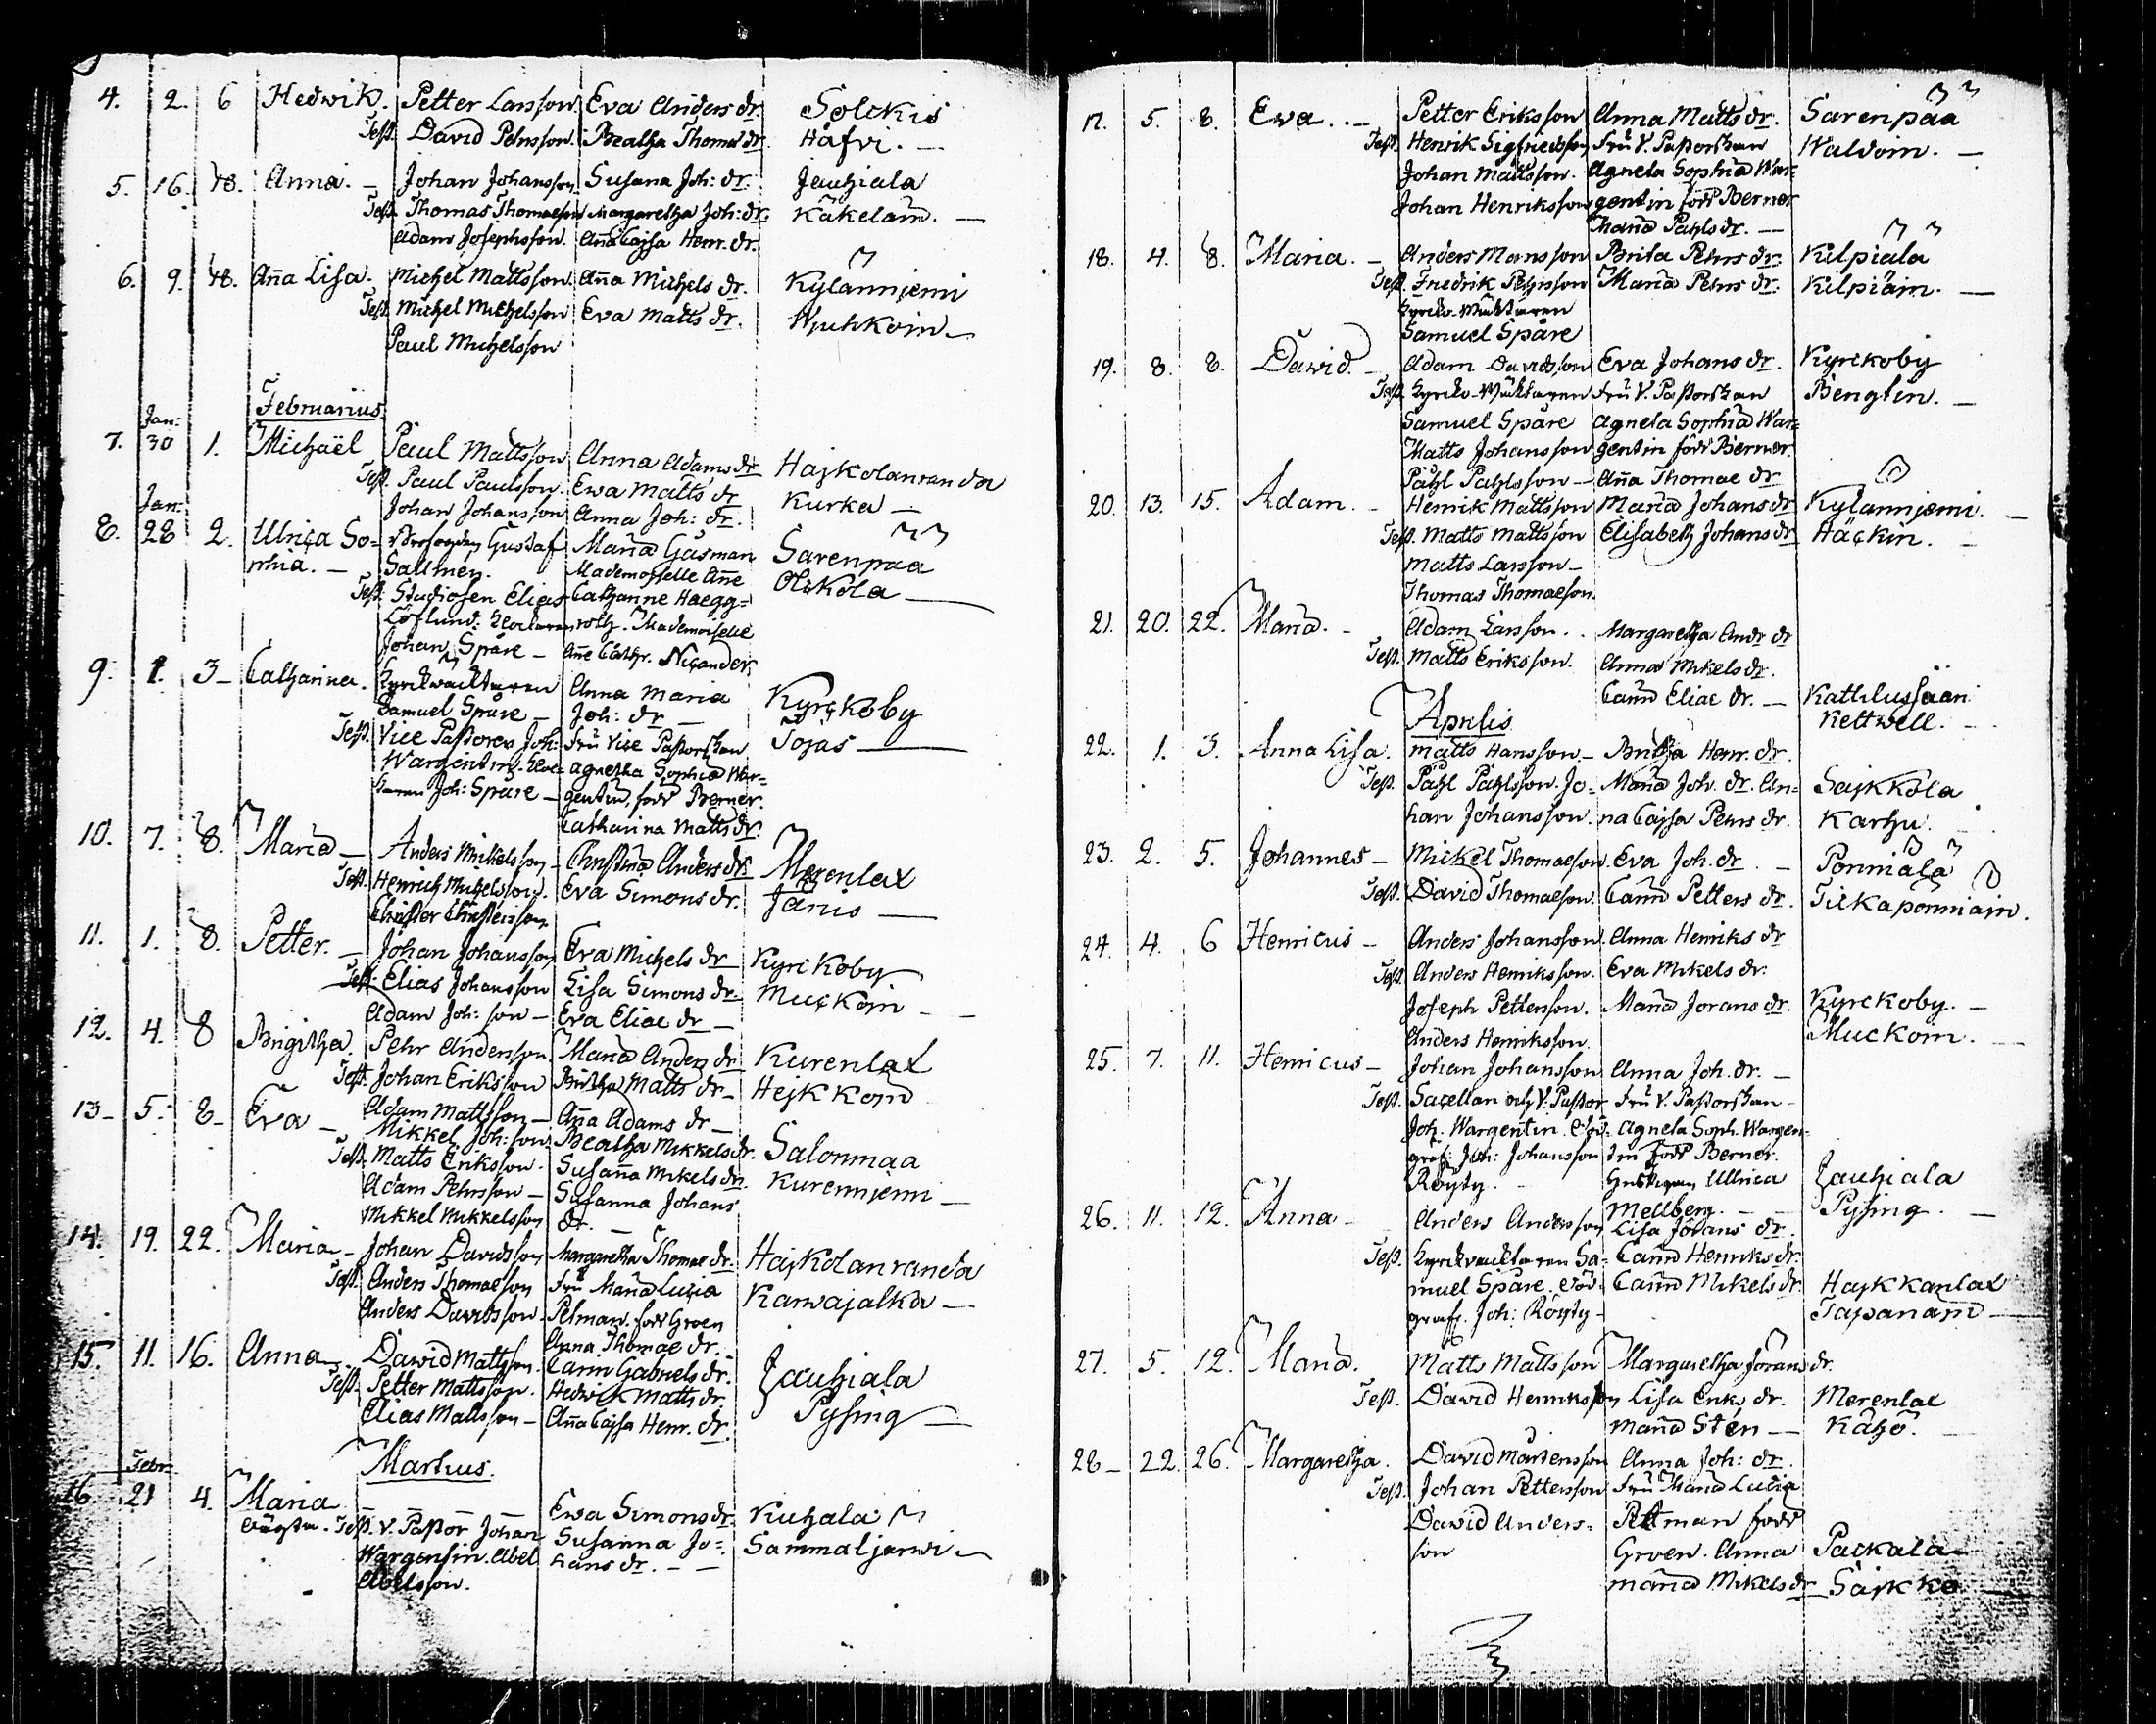 4. 2. 6 Hedwik. Petter Larsson Eva Anders dr. Solckis
Test. David Pehrsson. Beatha Thomæ dr Håfvi. —
5. 16. 18. Anna. — Johan Johansson Susana Joh: dr. Jauhiala
Test. Thomas Thomaeson Margaretha Joh: dr. Käkeläin. —
Adam Josephsson. Aña Cajsa Henr. dr.
6. 9. 18. Aña Lisa. Michel Mattsson. Aña Michels dr. Kylänniemi
Test. Michel Michelsson Eva Matts dr.
Paul Michelsson
Februarius.
Jan:
7. 30 1. Michaël Paul Mattsson Anna Adams dr Hajkolanranda
Test. Paul Paulsson. Ewa Matts dr Kurka —
Johan Johansson Anna Joh: dr.
Jan:
8. 28 2. Ulrica So= Gustaf Maria Gåsman Sarenpaa
phia. — Sallmen. Mademoiselle Añe Olckola —
Test. Studiosen Elias Catharine Haegg=
Löflund. Klockaren roth. Mademoiselle
Johan Spåre — Añe Cathr. Nicander.
9. 1. 3 — Catharina. Kyrckwacktaren Anna Maria Kyrckoby
Samuel Spåre — Joh: dr — Tojas —
Test. Vice Pastoren Joh: Fru Vice Pastorskan
Wargentin. Kloc= Agnetha Sophia War=
karen Joh: Spåre — gentin, född Berner.
Catharina Matts dr.
10. 7. 8. Maria — Anders Mikelsson — Christina Anders dr. Merenlax
Test. Henrich Michelsson. Eva Simons dr. Jänis —
Christer Christersson
11. 1. 8. Petter. — Johan Johansson Eva Michels dr Kyrckoby
Test. Elias Johansson Lisa Simons dr. Muckoin — —
Adam Joh: son — Eva Eliae dr —
12. 4. 8 Brigitha. Pehr Andersson. Maria Anders dr Kurenlax
Test. Johan Eriksson Britha Matts dr — Hejkkoin
13 — 5. 8 — Eva — Adam Mattsson — Aña Adams dr — Salonmaa
Mikkel Joh: son. Beatha Mikkels dr. Kurenniemi —
Test. Matts Eriksson. Susaña Mikels dr.
Adam Pehrsson — Susanna Johans
Mikkel Mikkelsson dr. —
14. 19. 22. Maria — Johan Davidsson Margaretha Thomae dr. Hajkolanranda
Test. Anders Thomaeson Fru Maria Lucia Karvajalka —
Anders Davidsson. Petman. född Groen
Anna Thomae dr. —
15. 11. 16. Anna — David Mattsson. Carin Gabriels dr. Jauhiala
Test. Petter Mattsson. Hedwik Matts dr. Pysing —
Elias Mattsson — Aña Cajsa Henr. dr.
Martius.
Febr.
16. 21 4. Maria Ewa Simons dr. Kuhala
Test. V. Pastor Johan Susanna Jo= Sammaljerwi —
Wargentin. Abel hans dr. — —
Abelsson.
17. 5. 8. Eva. — Petter Eriksson Anna Matts dr. Sarenpää
Test. Henrik Sigfriedsson Fru V. Pastorskan Waldom. —
Johan Mattsson. Agneta Sophia War=
Johan Henriksson gentin född Berner
Maria Påhls dr. —
18. 4. 8. Maria. — Anders Månsson Brita Pehrs dr. Kilpiala
Test. Fredrik Pehrsson Maria Pehrs dr. Kilpiäin. —
Kyrko-Wäktaren
Samuel Spåre
19. 8. 8. David. — Adam Davidsson Eva Johans dr. Kyrckoby
Test. Kyrko-Wäktaren Fru V. Pastorskan Bengtin. —
Samuel Spåre Agneta Sophia War=
Matts Johansson gentin född Berner.
Påhl Påhlsson — Aña Thomae dr
20. 13. 15. Adam. — Henrik Mattsson Maria Johans dr Kylänniemi. —
Test. Matts Mattsson Elisabeth Johans dr Häckin. —
Matts Larsson —
Thomas Thomaeson.
21. 20. 22. Maria. — Adam Larsson. . Margaretha Andr dr
Test. Matts Eriksson. Anna Mikels dr.
Carin Eliae dr. — Kattilussaari
Aprilis Kettwell. —
22. 1. 3. Anna Lisa. Matts Hansson. — Britha Henr. dr.
Test. Påhl Påhlsson. Jo= Maria Joh. dr. An= Säjkkölä
han Johansson. na Cajsa Pehrs dr. Karhu. —
23. 2. 5. Johannes — Mickel Thomaeson. Eva Joh. dr. — Ponniala
Test. David Thomaeson. Carin Petters dr. Tilkaponniain.
24. 4. 6 Henricus — Anders Johansson. Anna Henriks dr
Test. Anders Henriksson. Eva Mikels dr.
Joseph Pettersson. Maria Jorans dr. Kyrckoby. —
Anders Henriksson. Muckoin. —
25. 7. 11. Henricus — Johan Johansson Anna Joh. dr. —
Test. Sacellan och V. Pastor Fru V. Pastorskan —
Joh. Wargentin. Coö= Agneta Soph. Wargen=
graf: Joh: Johansson tin född Berner.
Röyty. — Hustrun Ullrica Jauhiala
Mellberg. — Pysing. —
26. 11. 12. Anna — Anders Andersson Lisa Jörans dr.
Test. Kyrckvacktaren Sa= Carin Henriks dr.
muel Spåre. Coö= Carin Mikels dr. Hajkkanlax
graf. Joh: Röyty — Tapanain —
27. 5. 12. Maria. Matts Mattsson Margaretha Jöransdr.
Test. David Henriksson Lisa Eriks dr. Merenlax
Maria Sten — Kähö. —
28 — 22. 26. Margaretha. David Mårtensson Anna Joh: dr.
Test. Johan Pettersson Fru Maria Lucia
David Anders= Petman född
son Groen. Anna Packala
Maria Mikels dr Säjkkö —